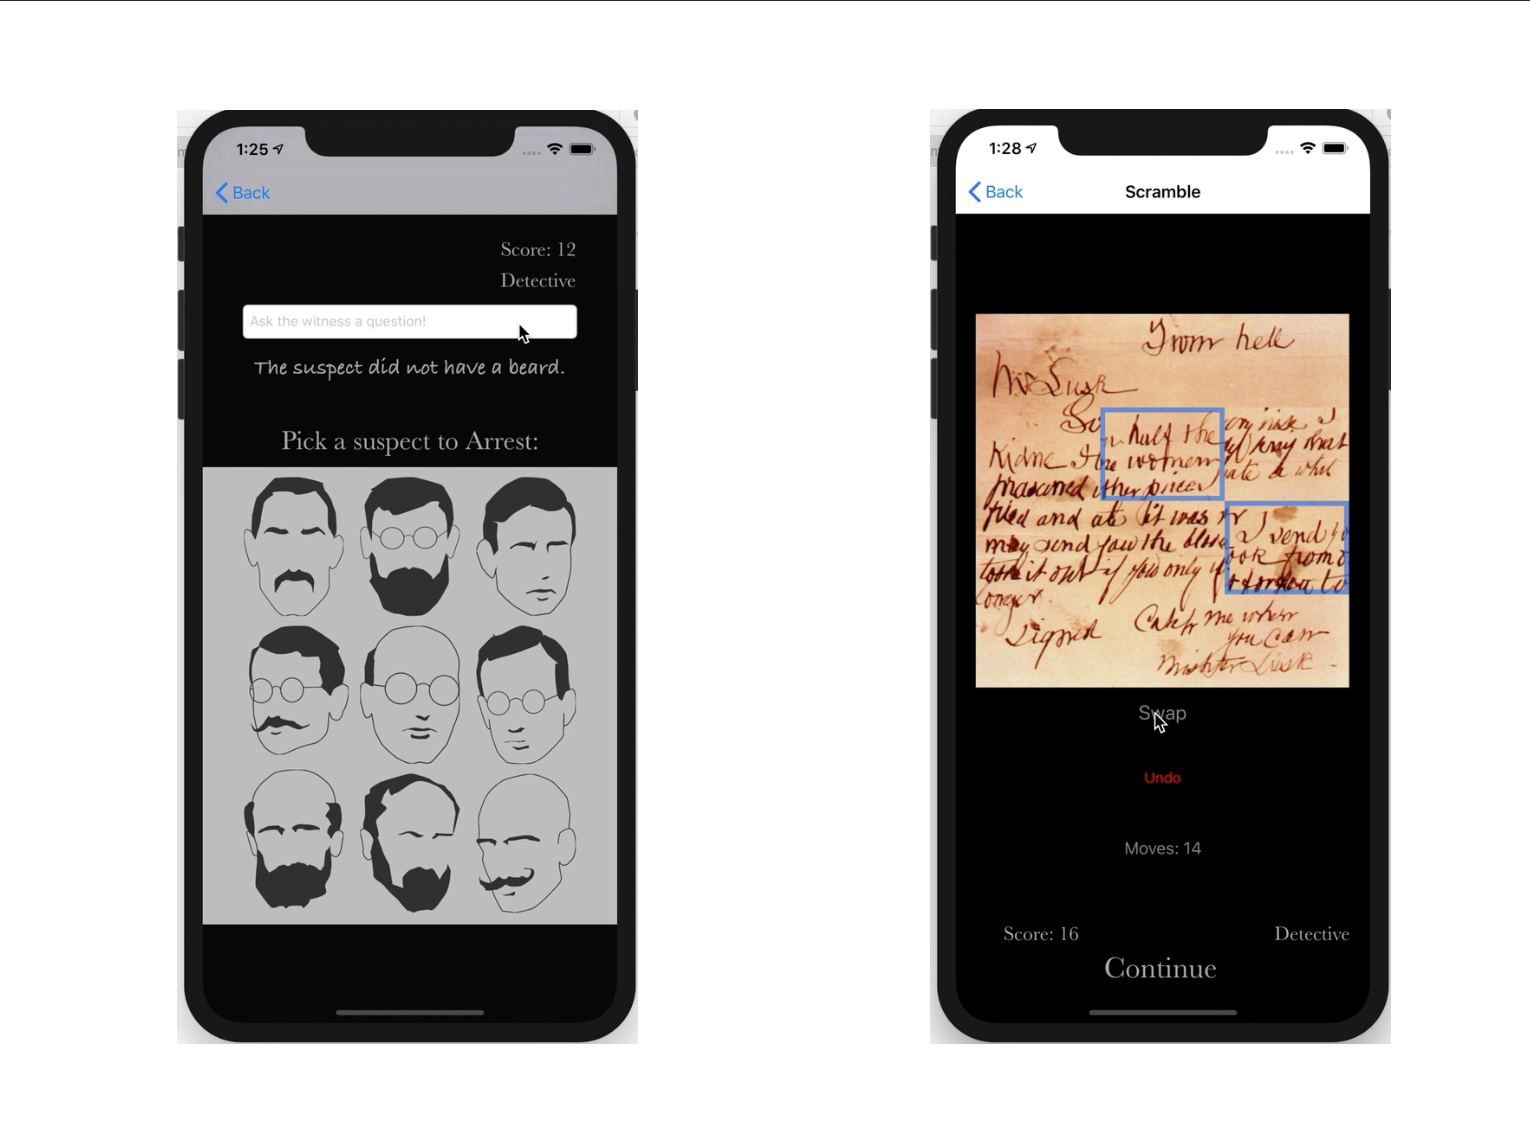 1:25
Back
Score: 12
Detective
Ask the witness a question!
The suspect did not have a beard.
Pick a suspect to Arrest:
1:28
Back
Scramble
From hell
Mr Lusk
Sor
n half the
Kidne I
ne women
prasarved
other piece
fried and ate it was
I send
may send you the
took it out if you only
longer.
Signed
Catch me when
you Can
Mishter Lusk
Swap
Undo
Moves: 14
Score: 16
Detective
Continue